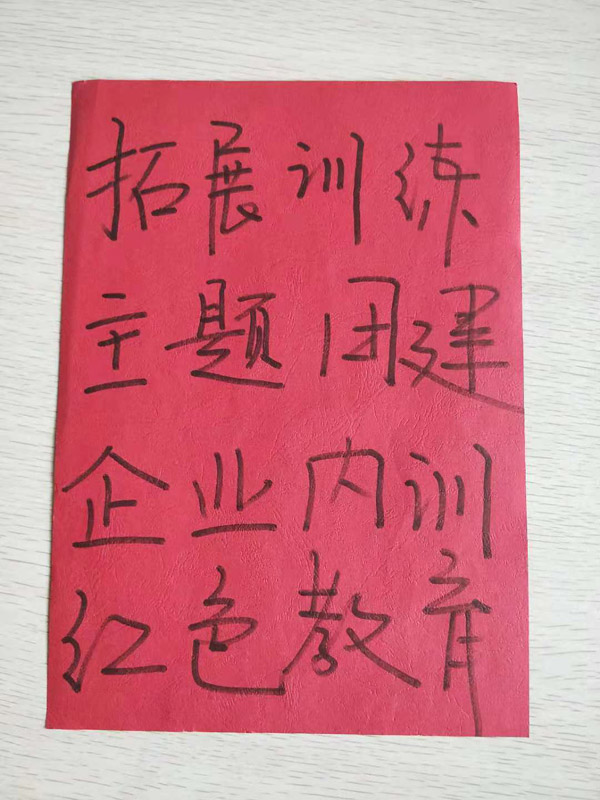 拓展训练
主题团建
企业内训
红色教育